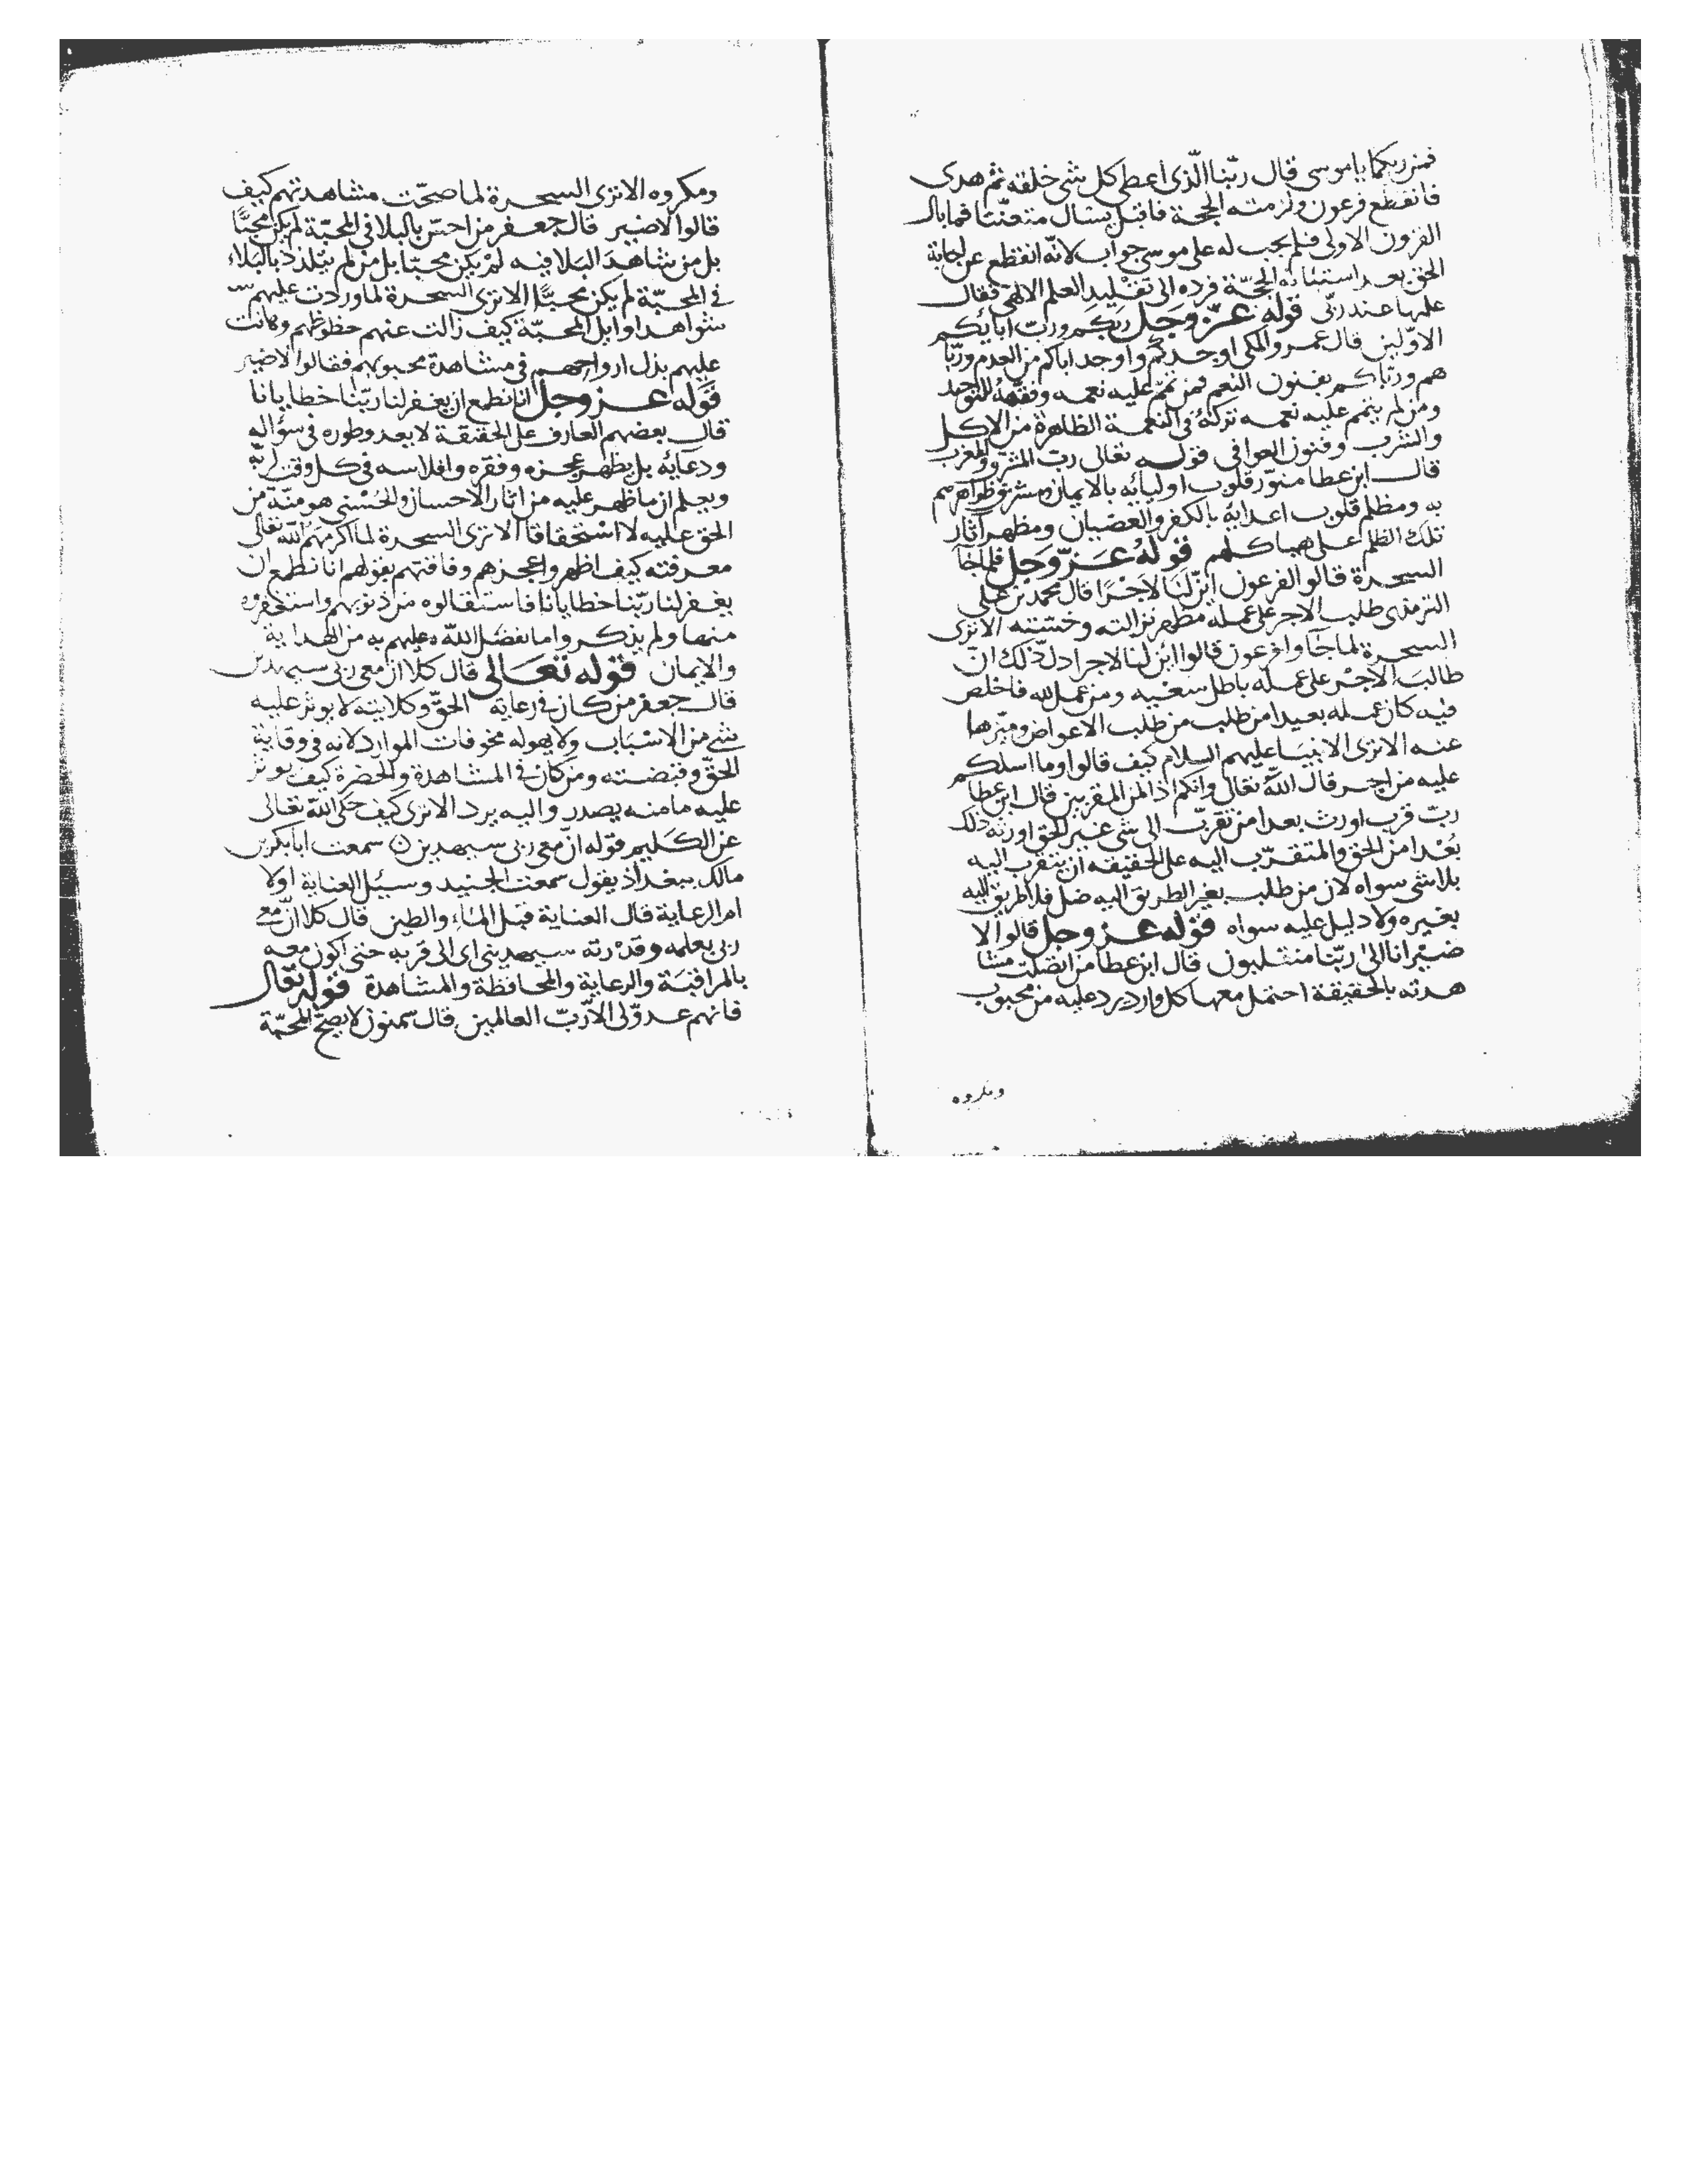 فمن ربكما يا موسى قال ربّنا الّذى اعطى كل شى خلقه ثم هدى
فانقطع فرعون ولزمته الحجة فاقبل يسال متعنّتا فما بال
القرون الاولى فلم يجب له على موسى جواب لانّه انقطع عن اجابة
الحق بعد استبانه الحجّة فرده الى تقليد العلم الالهى فقال
علمها عند ربّى قوله عزّ وجل ربكم ورب ابايكم
الاوّلين قال عمرو المكى اوجدكم واوجد اباكم من العدم وربّا
هم ورباكم بفنون النعم فمن تمّ عليه نعمه وفقه للتوحيد
ومن لم يتمم عليه نعمه تركه فى النعمة الظاهرة من الاكل
والشرب وفنون العوافى قوله تعالى ربّ المشرق والمغرب
قال ابن عطا منوّر قلوب اوليائه بالايمان ومشرق ظواهرهم
به ومظلم قلوب اعدايه بالكفر والعصيان ومظهر آثار
تلك الظلم على هياكلهم قوله عزّ وجل فلما جآ
السحرة قالوا لفرعون ائن لنا لاجرًا قال محمد بن على
الترمذى طلب الاجر على عمله مظهر نزالته وخسته الا ترى
السحرة لما جاوا فرعون قالوا ائن لنا لاجرا دلّ ذلك انّ
طالب الاجر على عمله باطل سعيه ومن عمل لله فاخلص
فيه كان عمله بعيدا من طلب من طلب الاعواض ومبّرها
عنه الا ترى الانبيا عليهم السلام كيف قالوا وما اسلكم
عليه من اجر قال الله تعالى وانكم اذا لمن المقربين قال ابن عطا
ربّ قرب اورث بعدا من تقرّب الى شى غير الحق اورثه ذلك
بُعْدا من الحق والمتقرّب اليه على الحقيقه ان يتقرب اليه
بلا شى سواه لان من طلب بغير الطريق اليه ضل فلا طريق اليه
بغيره ولا دليل عليه سواه قوله عز وجل قالوا لا
ضير انا الى ربّنا منقلبون قال ابن عطا من اتصلت مشا
هدته بالحقيقة احتمل معها كل وارد يرد عليه من محبوب
ومكروه
ومكروه الا ترى السحرة لما صحّت مشاهدتهم كيف
قالوا لا ضير قال جعفر من احسّ بالبلا فى المحبّة لم يكن محبًّا
بل من شاهد البلا فيه لم يكن محبّا بل من لم يتلذذ بالبلاء
فى المحبّة لم يكن محبًّا الا ترى السحرة لما وردت عليهم
شواهد اوايل المحبّة كيف زالت عنهم حظوظهم وكانت
عليهم بذل ارواحهم فى مشاهدة محبوبهم فقالوا لا ضير
قوله عز وجل انا نطمع ان يغفر لنا ربّنا خطايانا
قال بعضهم العارف على الحقيقة لا يعد وطوره فى سؤاله
ودعائه بل يظهر عجزه وفقره وافلاسه فى كل وقت لربّه
ويعلم ان ما ظهر عليه من اثار الاحسان والحُسْنى هو منّة من
الحق عليه لا استحقاقا الا ترى السحرة لما اكرمهم الله تعالى
معرفته كيف اظهروا عجزهم وفاقتهم بقولهم انا نطمع ان
يغفر لنا ربّنا خطايانا فاستقالوه من ذنوبهم واستغفروه
منها ولم يذكروا ما تفضل الله عليهم به من الهداية
والايمان قوله تعالى قال كلا ان معى ربى سيهدين
قال جعفر من كان فى رعاية الحقّ وكلايته لا يوثر عليه
شى من الاسباب ولا يهوله مخوفات الموارد لانه فى وقاية
الحقّ وقبضته ومن كان فى المشاهدة والحضرة كيف يوثر
عليه ما منه يصدر واليه يرد الا ترى كيف حكى الله تعالى
عن الكليم قوله انّ معى ربى سيهدين سمعت ابا بكر بن
مالك ببغداذ يقول سمعت الجنيد وسئل العناية اولا
ام الرعاية قال العناية قبل الماء والطين قال كلا انّ معى
ربى بعلمه وقدرته سيهدينى اى الى قربه حتى اكون معه
بالمراقبة والرعاية والمحافظة والمشاهدة قوله تعال
فانهم عدوّ لى الا ربّ العالمين قال سمنون لا يصحّ المحبّة